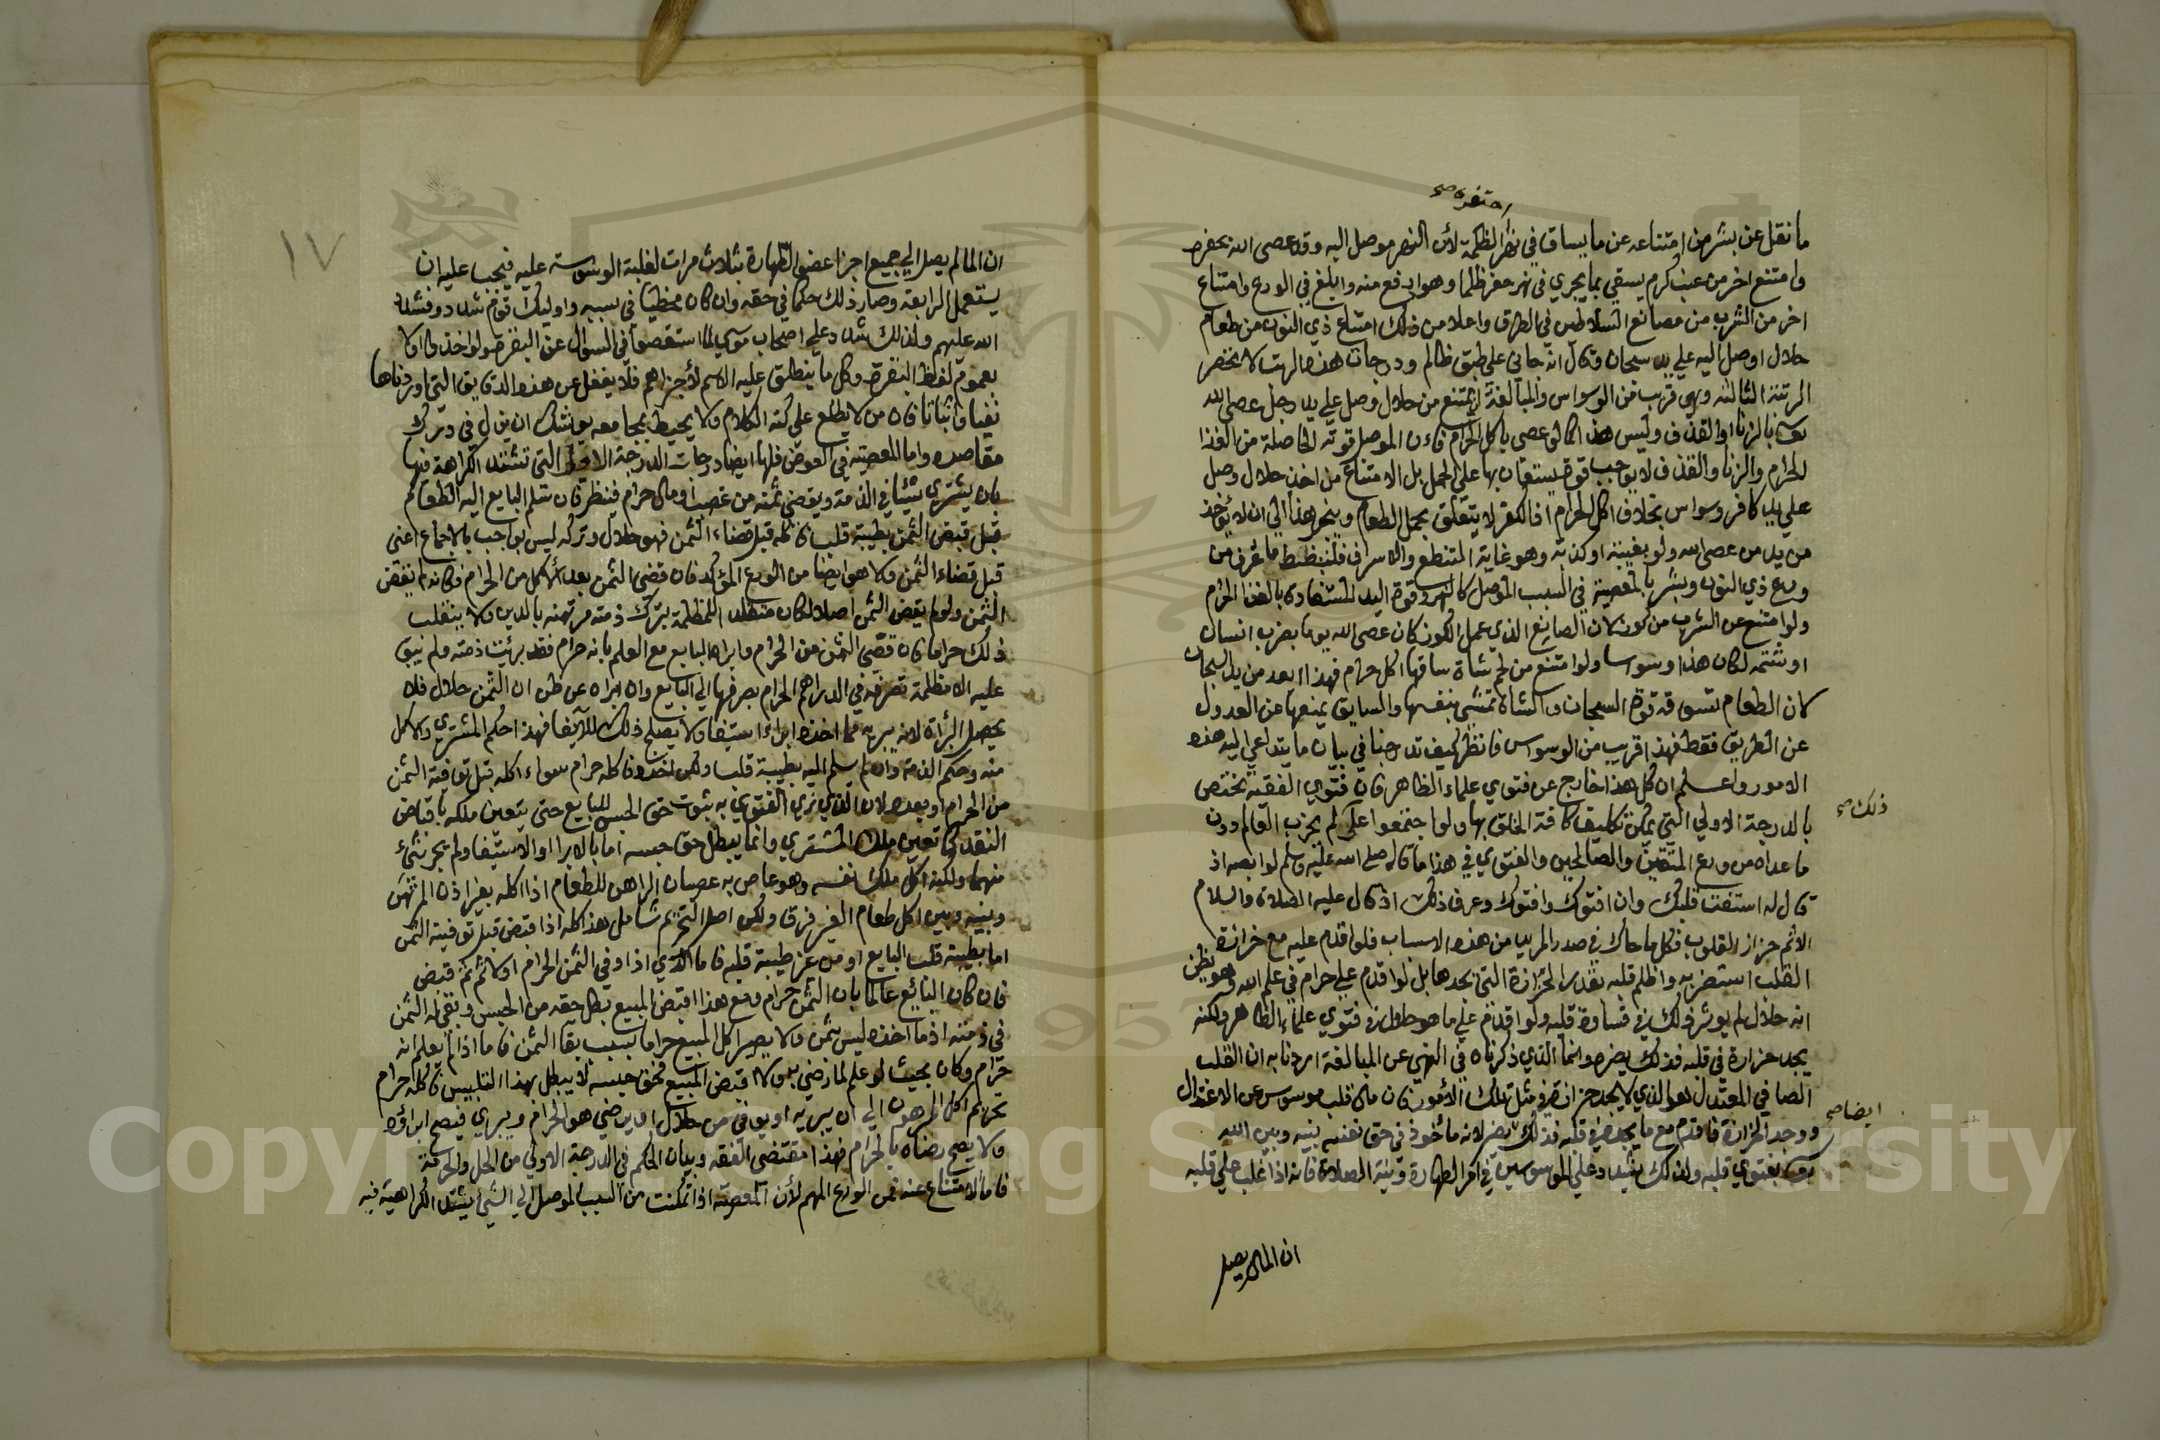 احتفره صح
ما نقل عن بشر من امتناعه عن ما يساق في نهر الظلمة لأن النهر موصل اليه وقد عصى الله بحفره
وامتنع اخر من عنب كرم يسقي بما يجري في نهر حفر ظلما وهو ارفع منه وابلغ في الورع وامتناع
اخر من الشرب من مصانع السلاطين في الطرق واعلا من ذلك امتناع ذي النون من طعام
حلال اوصل اليه علي يد سجان وقال انه جاني على طبق ظالم ودرجات هذه الرتب لا تنحصر
الرتبة الثالثة وهي قريب من الوسواس والمبالغة ان يمتنع من حلال وصل علي يد رجل عصى الله
بالزنا او القذف وليس هذا كما لو عصى باكل الحرام فان الموصل قوته الحاصلة من الغذا
الحرام والزنا والقذف لا يوجب قوة يستعان بها على الحمل بل الامتناع من اخذ حلال وصل
علي يد كافر وسواس بخلاف اكل الحرام اذ الكفر لا يتعلق بحمل الطعام وينجر هذا الي ان لا يؤخذ
من يد من عصى الله ولو بغيبة او كذبة وهو غاية التنطع والاسراف فليضبط ما عرف من
ورع ذي النون وبشر بالمعصية في السبب الموصل كالنهر وقوة اليد المستفادة بالغذا الحرام
ولو امتنع عن الشرب من كوز لان الصانع الذي عمل الكوز كان عصى الله يوما بضرب انسان
او شتمه لكان هذا وسواسا ولو امتنع من لحم شاة ساقها اكل حرام فهذا ابعد من يد السجان
لان الطعام تسوقه قوة السجان والشاة تمشي بنفسها والسايق يمنعها عن العدول
عن الطريق فقط فهذا قريب من الوسواس فانظر كيف تدرجنا في بيان ما يتداعي اليه هذه
الامور واعلم ان كل هذا خارج عن فتوي علماء الظاهر فان فتوي الفقيه تختص
بالدرجة الاولي التي يمكن تكليف كافة الخلق بها ولو اجتمعوا على لم يخرب العالم دون
ذلك صح
ما عداه من ورع المتقين والصالحين والفتوي في هذا ما قاله صلى الله عليه وسلم لوابصه اذ
قال له استفت قلبك وان افتوك وافتوك وعرف ذلك اذ قال عليه الصلاة والسلام
الاثم حزاز القلوب فكلما حاك في صدر المريد من هذه الاسباب فلو اقدم عليه مع حزازة
القلب استضر به واظلم قلبه بقدر الحزازة التي يجدها بل لو اقدم علي حرام في علم الله وهو يظن
انه حلال لم يوثر ذلك في قساوة قلبه ولو اقدم علي ما هو حلال في فتوي علماء الظاهر ولكنه
يجد حزازة في قلبه فذلك يضره وانما الذي ذكرناه في النهي عن المبالغة اردنا به ان القلب
الصافي المعتدل هو الذي لا يجد حزازة في مثل تلك الامور فان مال قلب موسوس عن الاعتدال
ايضا صح
ووجد الحزازة فاقدم مع ما يجده في قلبه فذلك يضر لانه مأخوذ في حق نفسه بينه وبين الله
بفتوي قلبه ولذلك يشدد علي الموسوسين في امر الطهارة ونية الصلاة فانه اذا غلب علي قلبه
ان الما لم يصل
١٧
ان الما لم يصل الي جميع اجزا عضو الطهارة بثلاث مرات لغلبة الوسوسة عليه فيجب عليه ان
يستعمل الرابعة وصار ذلك حكما في حقه وان كان مخطيا في نفسه واوليك قوم شددوا فشدد
الله عليهم ولذلك شدد علي اصحاب موسي لما استقصوا في السوال عن البقرة ولو اخذوا اولا
بعموم لفظ البقرة وكل ما ينطلق عليه الاسم لأجزاهم فلا يغفل عن هذه الدقايق التي اوردناها
نفيا واثباتا فان من لا يطلع على كنه الكلام ولا يحيط بمجامعه يوشك ان يزل في درك
مقاصده واما المعصية في العوض فلها ايضا درجات الدرجة الاولى التي تشتد الكراهة فيها
بان يشتري شيئا في الذمة ويقضي ثمنه من غصب او مال حرام فينظر فان سلم البايع اليه الطعام
قبل قبض الثمن بطيبة قلب فاكله قبل قضاء الثمن فهو حلال وتركه ليس بواجب بالاجماع اعنى
قبل قضاء الثمن ولا هو ايضا من الورع المؤكد فان قضى الثمن بعد الاكل من الحرام فكانه لم يقض
الثمن ولو لم يقض الثمن اصلا لكان متقلدا للمظلمة بترك ذمته مرتهنه بالدين ولا ينقلب
ذلك حراما فان قضى الثمن من الحرام وابراه البايع مع العلم بانه حرام فقد برئت ذمته ولم يبق
عليه الا مظلمة تصرفه في الدراهم الحرام بصرفها الي البايع وان ابراه عن ظن ان الثمن حلال فلا
يحصل البراة لانه يبريه مما اخذه ابراء استيفا ولا يصلح ذلك للايفا فهذا حكم المشتري والاكل
منه وحكم الذمة وان لم يسلم اليه بطيبة قلب ولكن اخذه فاكله حرام سواء اكله قبل توفية الثمن
من الحرام او بعده لان الذي نري الفتوي به ثبوت حق الحبس للبايع حتى يتعين ملكه باقباض
النقد كما تعين ملك المشتري وانما يبطل حق حبسه اما بالابرا او الاستيفا ولم يجر شيء
منهما ولكنه اكل ملك نفسه وهو عاص به عصيان الراهن للطعام اذا اكله بغير اذن المرتهن
وبينه وبين اكل طعام الغير فرق ولكن اصل التحريم شامل هذا كله اذا قبض قبل توفية الثمن
اما بطيبة قلب البايع او من غير طيبة قلبه فاما الذي اذا وفي الثمن الحرام اولا ثم قبض
فان كان البائع عالما بان الثمن حرام ومع هذا اقبض المبيع بطل حقه من الحبس وبقي له الثمن
في ذمته اذ ما اخذه ليس بثمن ولا يصير اكل المبيع حراما بسبب بقا الثمن فاما اذا لم يعلم انه
حرام وكان بحيث لو علم لما رضي به ولا اقبض المبيع فحق حبسه لا يبطل بهذا التلبيس فاكله حرام
تحريم اكل المرهون الي ان يبريه او يوفي من حلال او يرضي هو الحرام ويبري فيصح ابراؤه
ولا يصح رضاه بالحرام فهذا مقتضى الفقه وبيان الحكم في الدرجة الاولي من الحل والحرمة
فاما الامتناع عنه فمن الورع المهم لأن المعصية اذا تمكنت من السبب الموصل الي الشيء تشتد الكراهية فيه
Copyright © King Saud University
1957